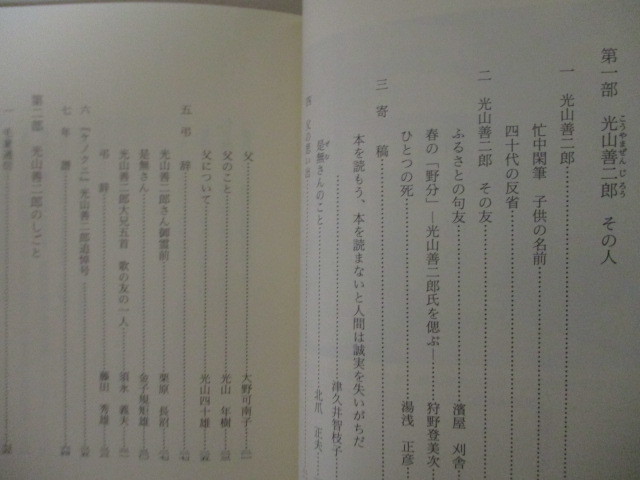 第一部 光山善二郎 その人
こうやまぜんじろう
一 光山善二郎
忙中閑筆 子供の名前
四十代の反省
二 光山善二郎 その友
ふるさとの句友 濱屋 刈舎
春の「野分」―光山善二郎氏を偲ぶ― 狩野登美次
ひとつの死 湯浅 正彦
三 寄稿
本を読もう、本を読まないと人間は誠実を失いがちだ 津久井智枝子
是無さんのこと 北爪 正夫
ぜむ
四 父の思い出
父 大野可南子
父のこと 光山 年樹
父について 光山四十雄
五 弔辞
光山善二郎さん御霊前 栗原
是無さん 金子
光山善二郎大兄五首 歌の友の一人 義夫
弔辞 藤田 秀雄
六 光山善二郎追悼号
七 年譜
第二部 光山善二郎のしごと
一